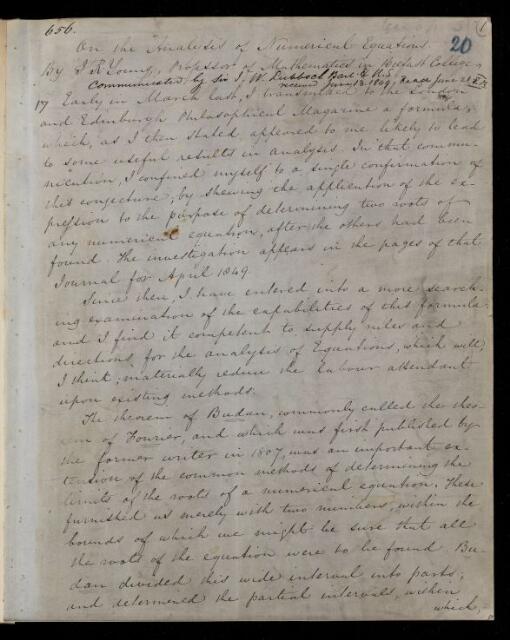 656.
1
20
On the Analysis of Numerical Equations.
By J. R. Young, Professor of Mathematics in Belfast College,
Communicated by Sir J. W. Lubbock Bart. &
received June 13. 1849, Read June 21
17 Early in March last, I transmitted to the London
and Edinburgh Philosophical Magazine a formula,
which, as I then stated appeared to me likely to lead
to some useful results in analysis. In that commu-
nication, I confined myself to a single confirmation of
this conjecture, by shewing the application of the ex-
pression to the purpose of determining two roots of
any numerical equation, after the others had been
found. The investigation appears in the pages of that
Journal for April 1849.
Since then, I have entered into a more search-
ing examination of the capabilities of this formula
and I find it competent to supply rules and
directions for the analysis of Equations, which will,
I think, materially reduce the labour attendant
upon existing methods.
The theorem of Budan, commonly called the theo-
rem of Fourier, and which was first published by
the former writer in 1807, was an important ex-
tension of the common methods of determining the
limits of the roots of a numerical equation. These
furnished us merely with two numbers, within the
bounds of which we might be sure that all
the roots of the equation were to be found. Bu-
dan divided this wide interval into parts,
and determined the partial intervals, within
which,